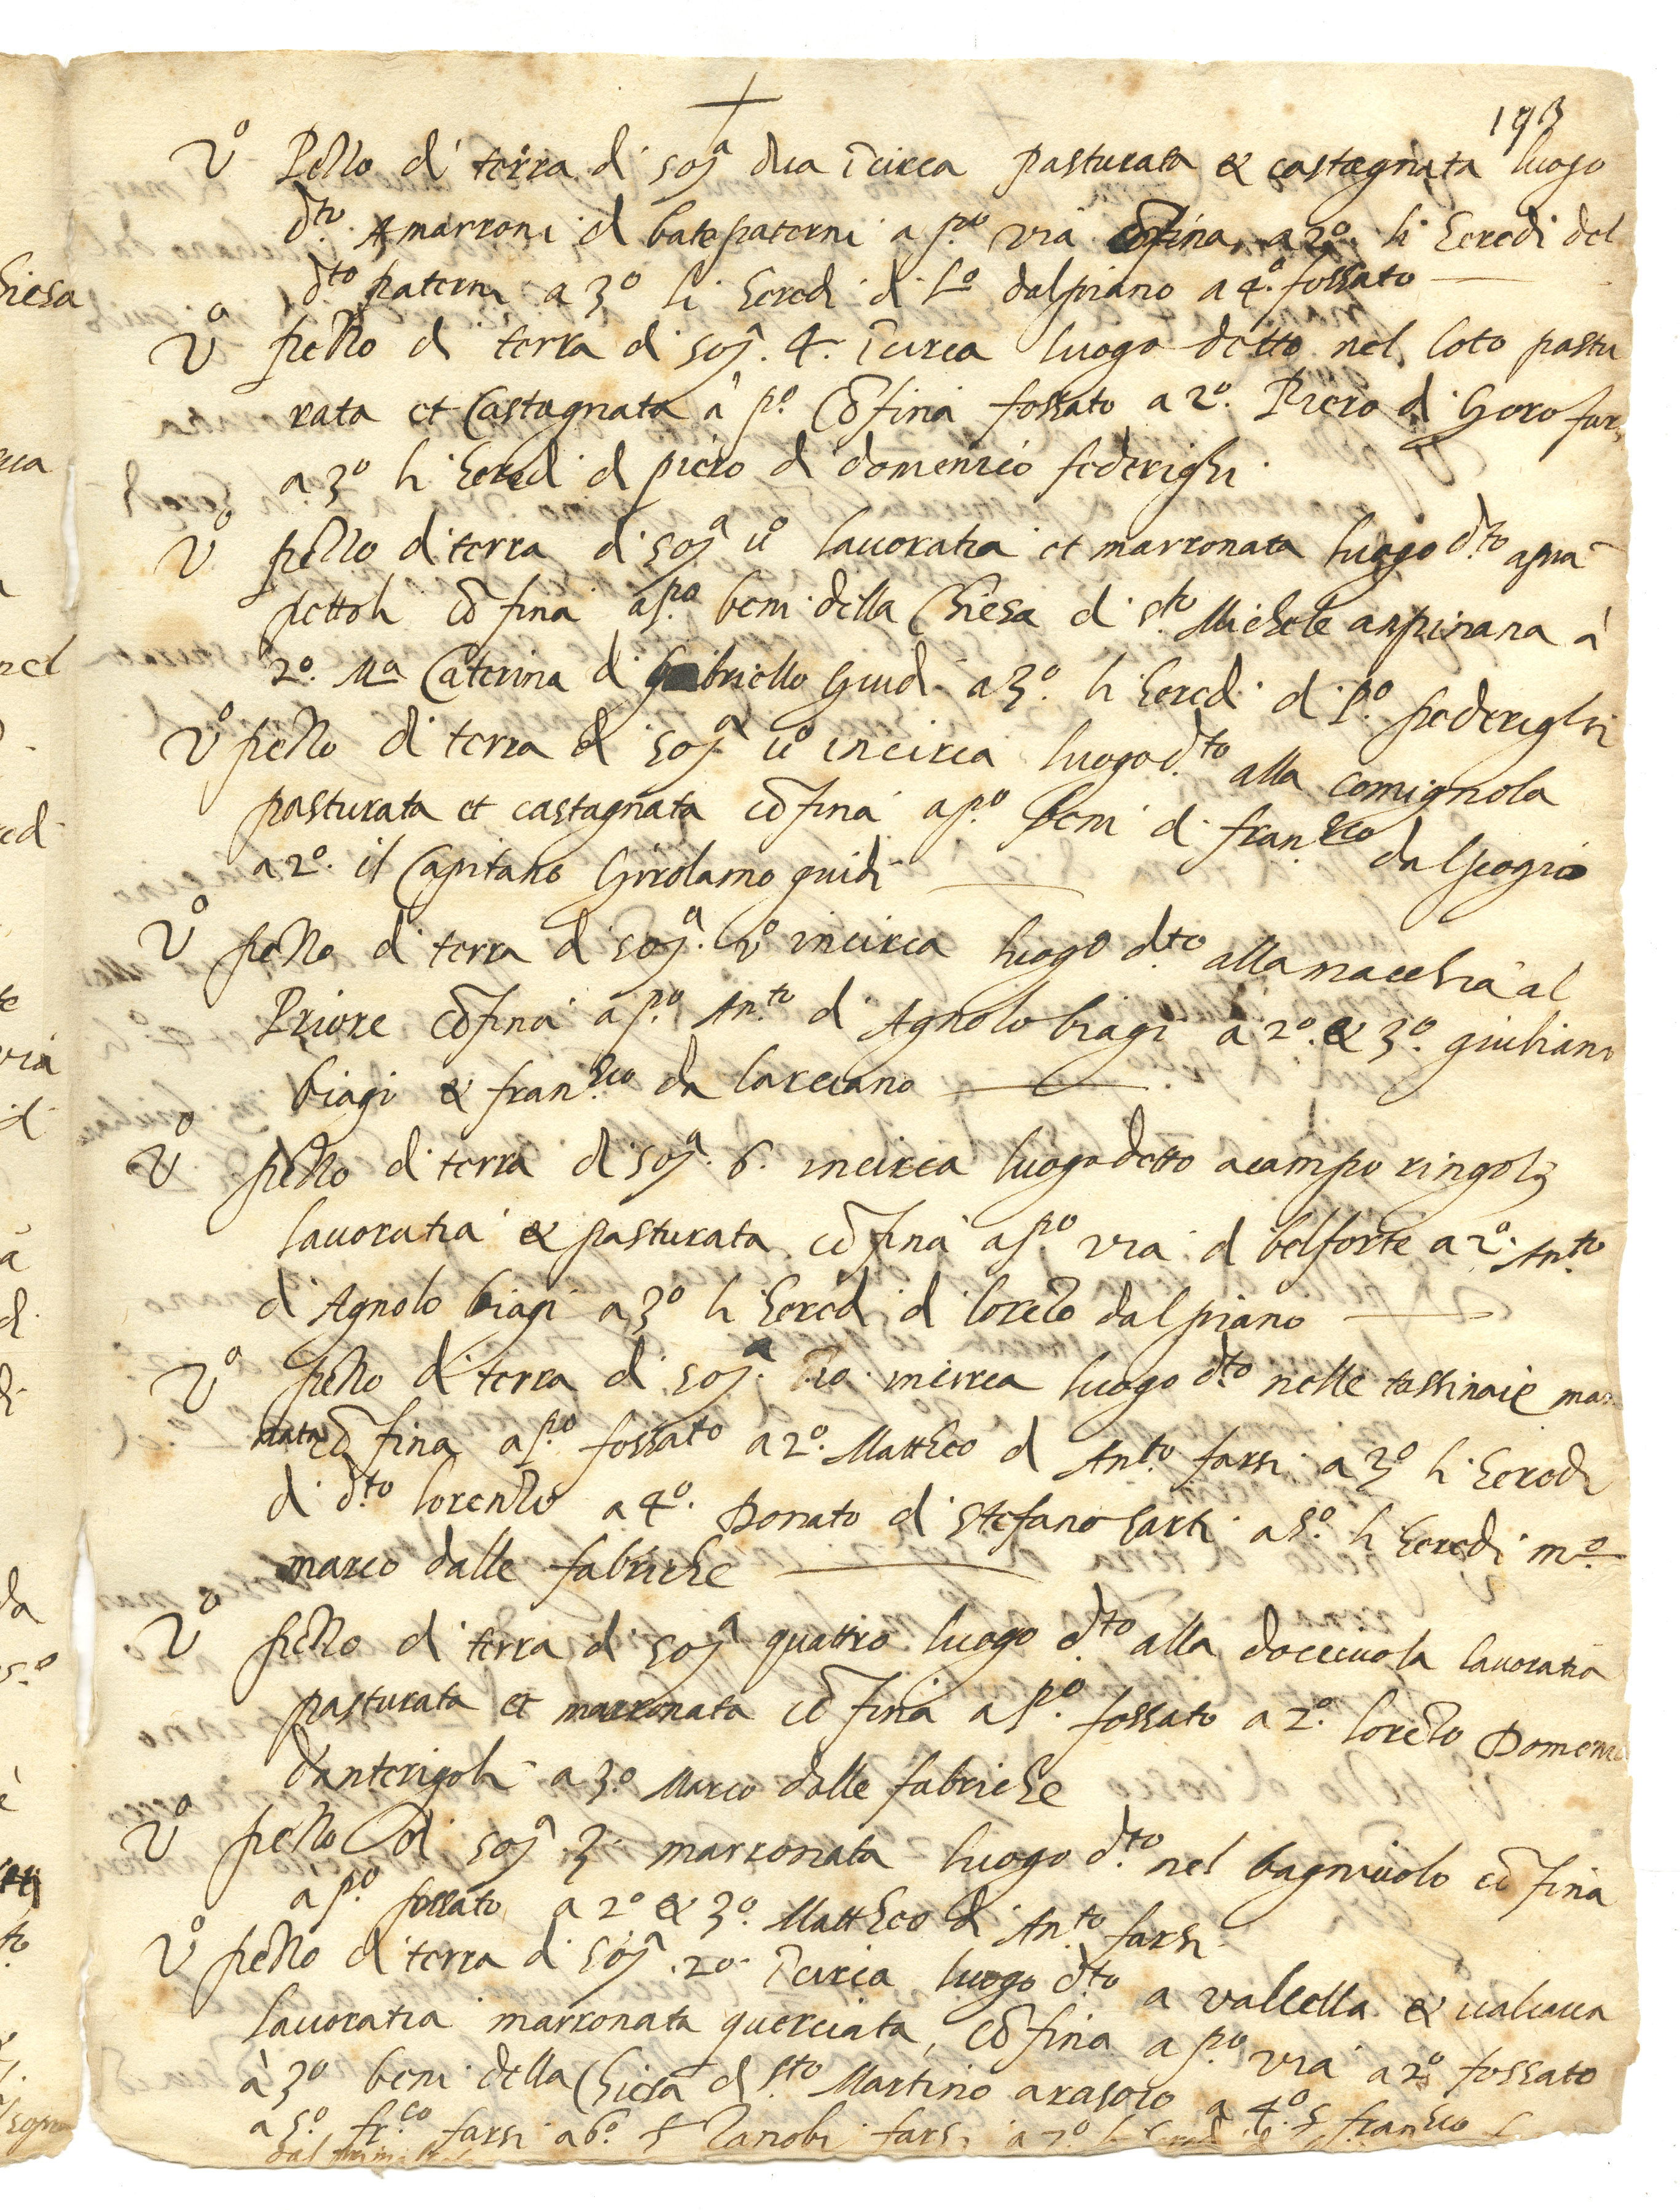 193
Vº Pezzo di terra di soſª dua ĩcirca pasturata & castagnata luogo
dto Amarroni di bate paterni a pº via cõfina, a 2º li heredi del
dto paterni a 3º li heredi di Lº dalpiano a 4º fossato
Vº pezzo di terra di soſª. 4. ĩcirca luogo detto nel loto pastu
rata et Castagnata à pº. Cõfina fossato a 2º. Piero di Goro farsi
a 3º li heredi di piero di domenico federighi.
Vº pezzo di terra di soſª uº lauoratia et marronata luogo dto
pettoli cõfina a pº beni della Chiesa di sto Michele ampinana à
2º. Mª Caterina di Gabriello Guidi a 3º. li heredi di Pº. federighi
Vº pezzo di terra di soſª uº incirca luogo dto alla comignola
pasturata et castagnata cõfina a pº beni di fran.sco dalpogio
a 2º. il Capitano Girolamo guidi
Vº pezzo di terra di soſª. vº incirca luogo dto alla macchia al
Priore cõfina a pº. An.to di Agnolo biagi a 2º. & 3º. giuliano
biagi & fran.sco da larciano
Vº pezzo di terra di soſª. 6. incirca luogo detto acampo ringoli
lauoratia & pasturata cõfina a pº via di belforte a 2º. An.to
di Agnolo biagi a 3º li heredi di lorẽzo dal piano
Vº pezzo di terra di soſª. incirca luogo dto nelle tassinaie mar
nata cõfina a pº fossato a 2º. Mattheo di An.to farsi a 3º li heredi
di dto lorenzo a 4º. Donato di Stefano sarti a 5º. li heredi mº
marco dalle fabriche
Vº pezzo di terra di soſª quattro luogo dto alla docciuola lauoratia
pasturata et marronata cõfina a pº. fossato a 2º. lorẽzo Domeni
danterigoli a 3º. Marco dalle fabriche
Vº pezzo di soſª 3. marronata luogo dto nel bagniuolo cõfina
à pº fossato, a 2º & 3º. Mattheo di An.to farsi
Vº pezzo di terra di soſª. 20. ĩcirca luogo dto a valcella &
lauoratia marronata querciata, cõfina a pº. via a 2º fossato
à 3º beni della Chiesa di sto Martino arasoio a 4º. S fran.sco
a 5º. fr.co farsi a 6º. S Zanobi farsi a 7º